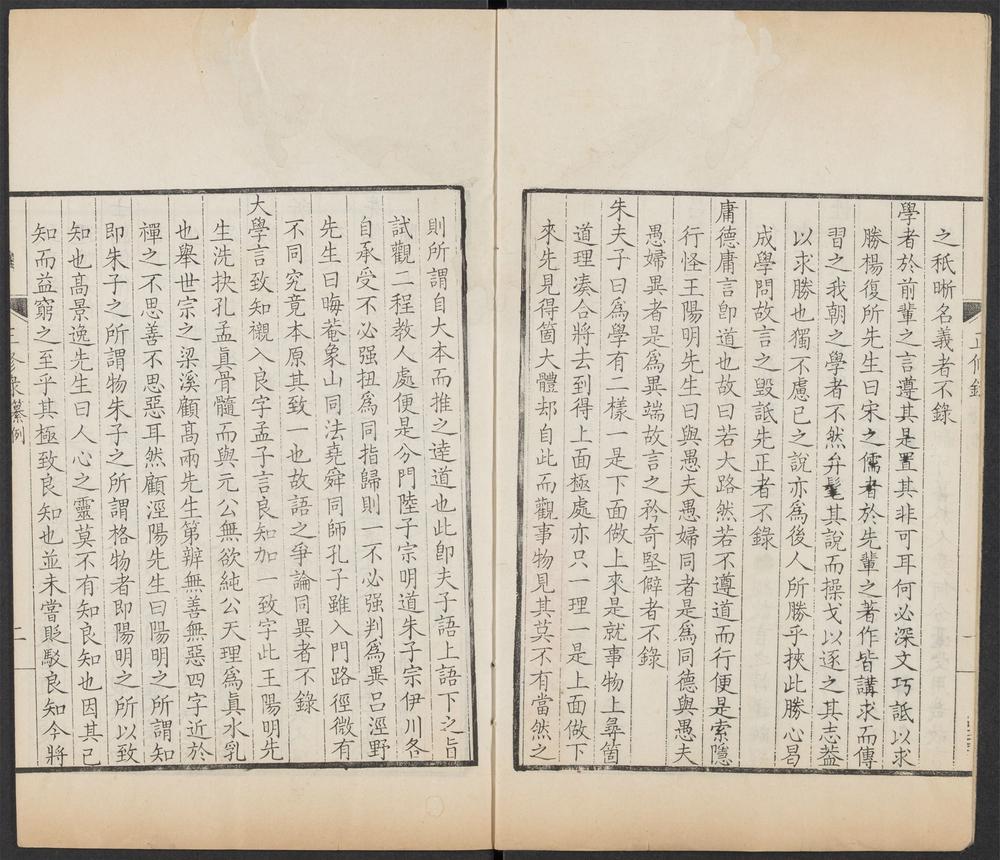 之秖晰名義者不錄
學者於前輩之言遵其是置其非可耳何必深文巧詆以求
勝楊復所先生曰宋之儒者於先輩之著作皆講求而傳
習之我朝之學者不然弁髦其說而操戈以逐之其志益
以求勝也獨不慮己之說亦為後人所勝乎挾此勝心曷
成學問故言之毀詆先正者不錄
庸德庸言卽道也故曰若大路然若不遵道而行便是索隱
行怪王陽明先生曰與愚夫愚婦同者是爲同德與愚夫
愚婦異者是爲異端故言之矜奇堅僻者不錄
朱夫子曰爲學有二樣一是下面做上來是就事物上尋箇
道理湊合將去到得上面極處亦只一理一是上面做下
來先見得箇大體却自此而觀事物見其莫不有當然之
則所謂自大本而推之逹道也此卽夫子語上語下之旨
試觀二程教人處便是分門陸子宗明道朱子宗伊川各
自承受不必强扭爲同指歸則一不必强判爲異呂涇野
先生曰晦菴象山同法堯舜同師孔子雖入門路徑微有
不同究竟本原其致一也故語之爭論同異者不錄
大學言致知襯入良字孟子言良知加一致字此王陽明先
生洗抉孔孟眞骨髓而與元公無欲純公天理爲眞水乳
也舉世宗之梁溪顧高兩先生第辨無善無惡四字近於
禪之不思善不思惡耳然顧涇陽先生曰陽明之所謂知
卽朱子之所謂物朱子之所謂格物者卽陽明之所以致
知也高景逸先生曰人心之靈莫不有知良知也因其已
知而益窮之至乎其極致良知也並未嘗貶駁良知今將
纂例
二